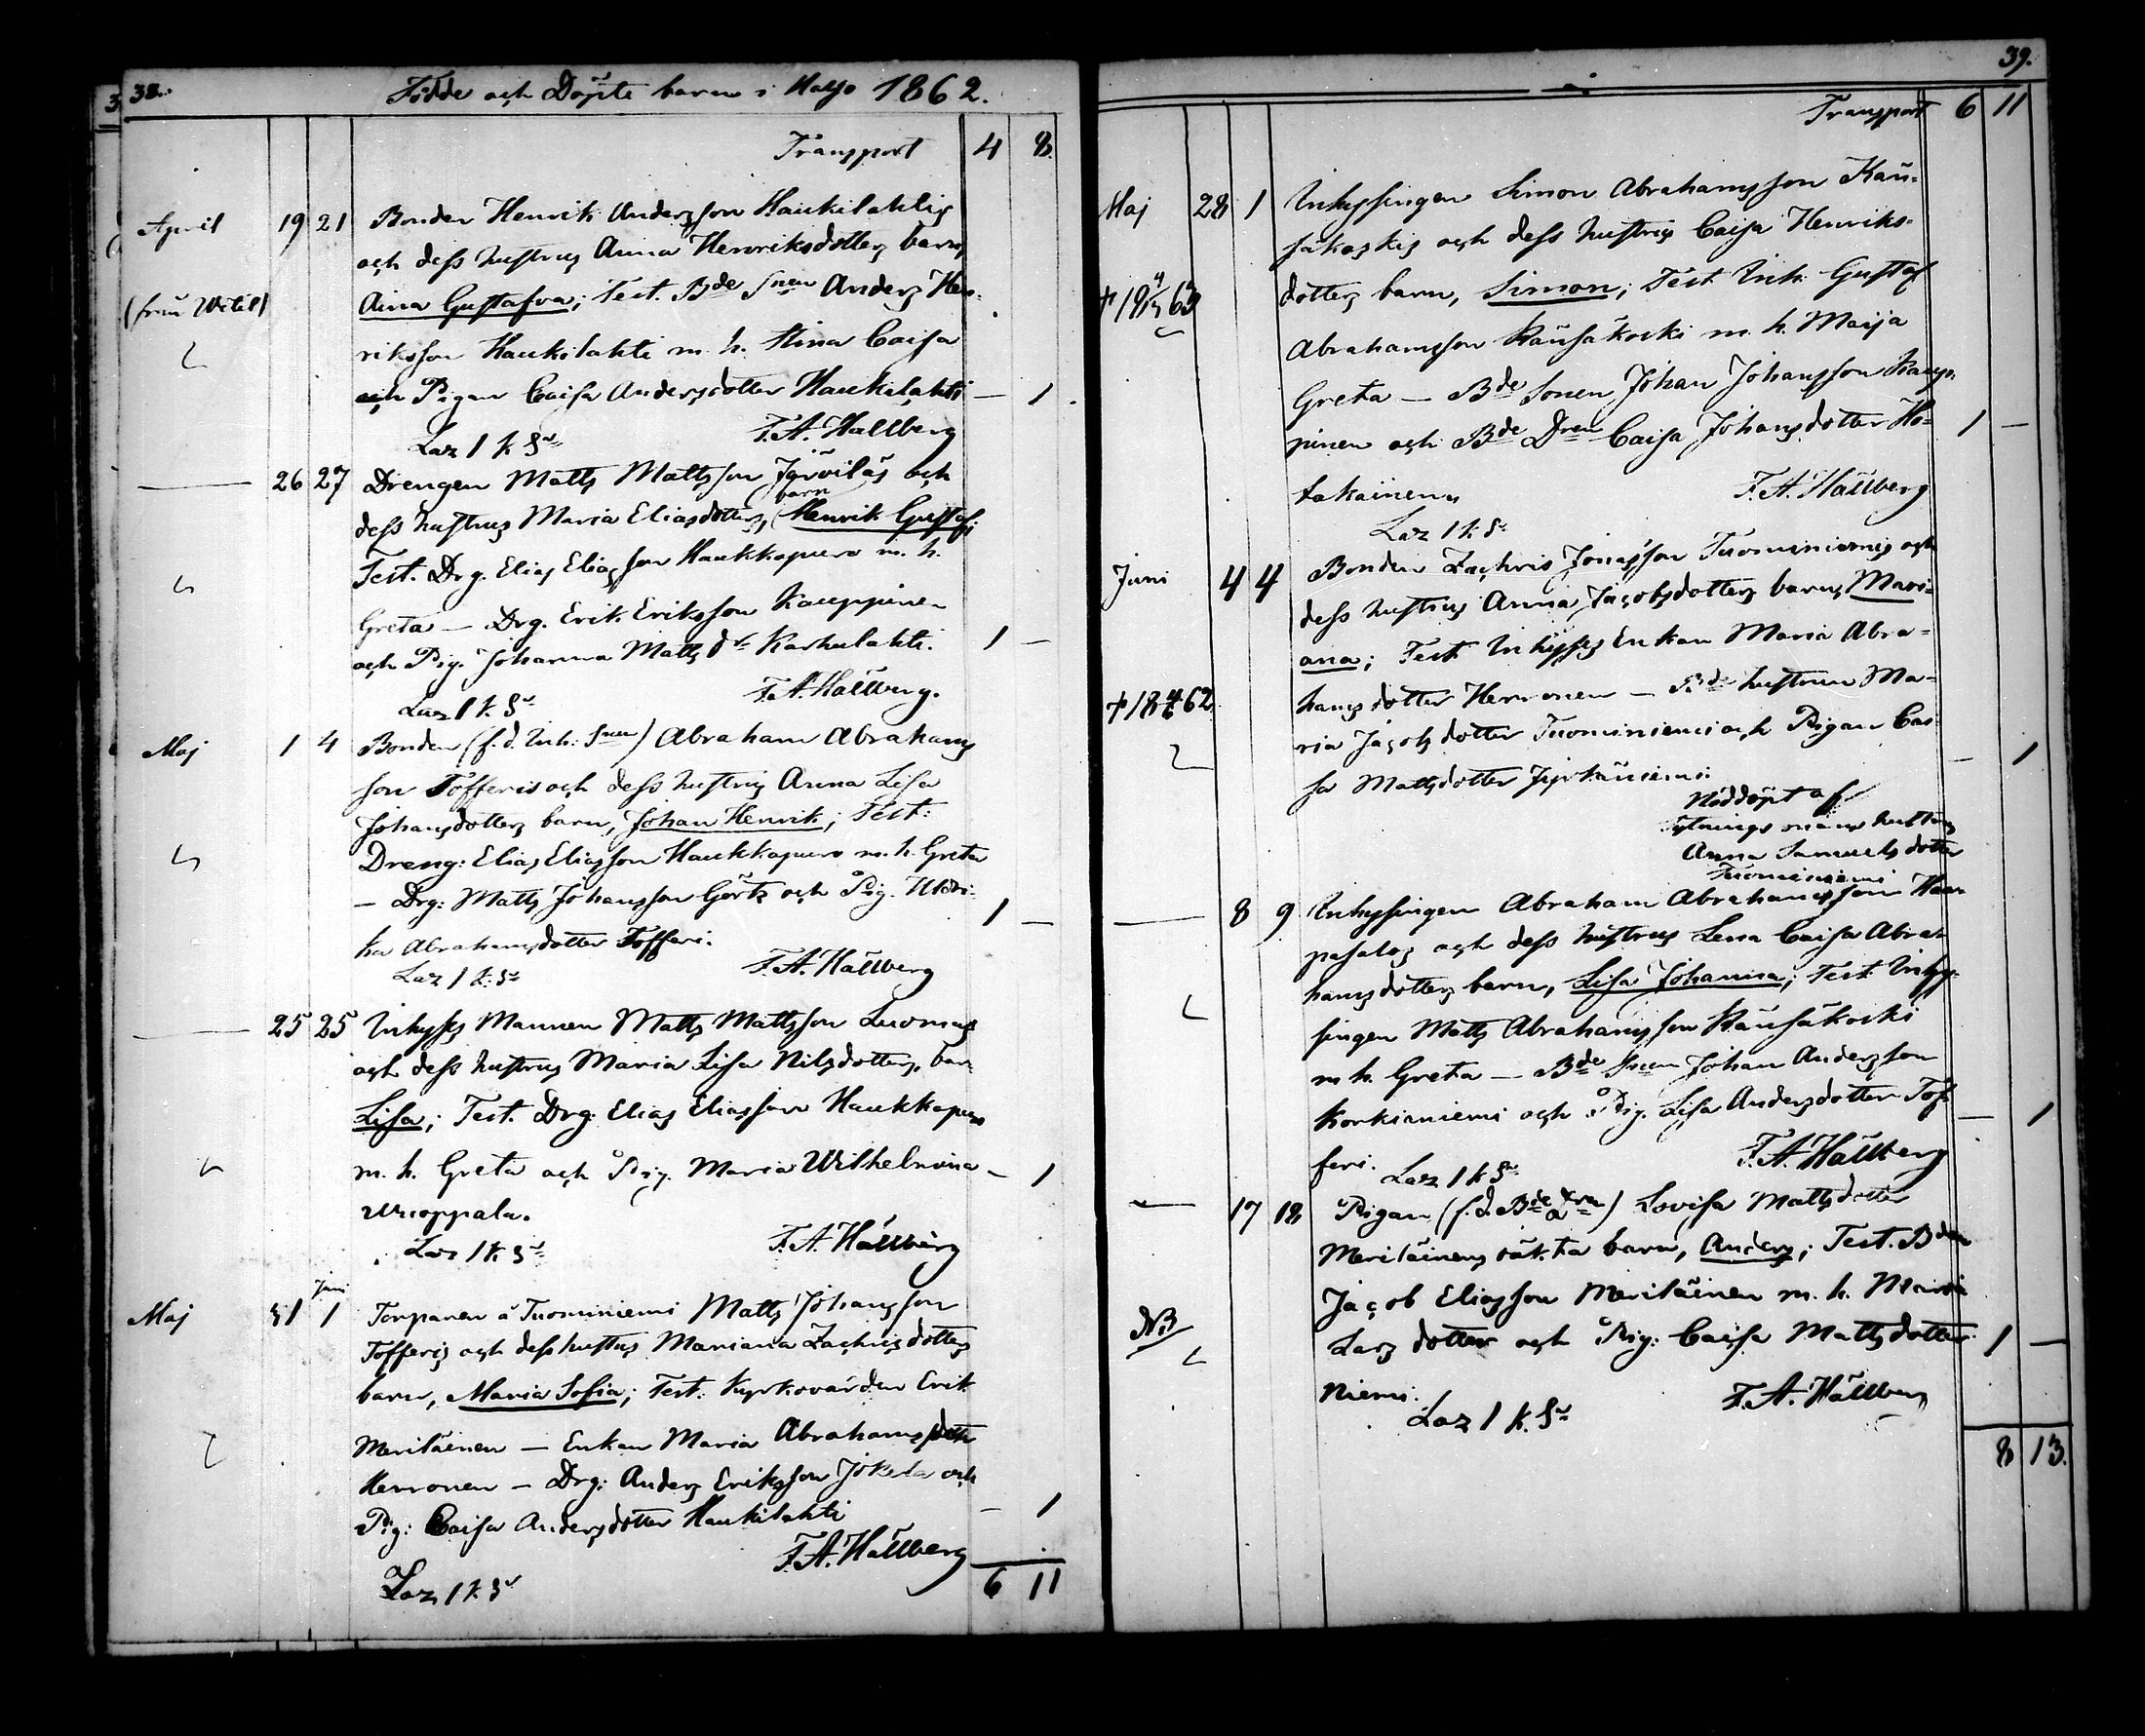 38.
Födde och Döpte barn i Halso 1862.
Transport 4 8
April 19 21 Bonden Henrik Andersson Haukilahtis
och dess hustrus Anna Henriksdotters barn,
(från Wetil) Aina Gustafva; Test. Bde Snen Anders Hen-
riksson Haukilahti m. h. Stina Caisa
och Pigan Caisa Andersdotter Haukilahti — 1
Laz 1 k. Sr F. A. Hällberg
— 26 27 Drengen Matts Mattsson Järviläs och
dess hustrus Maria Eliasdotters, barn Henrik Gustaf;
Test. Drg. Elias Eliasson Haukkapuro m. h.
Greta — Drg. Erik Eriksson Kauppinen
och Pig. Johanna Matts dr Karhulahti. 1 —
Laz 1 k. Sr F. A. Hällberg.
Maj 1 4 Bonden (f. d. Inh: Snen) Abraham Abrahams
son Tofferis och dess hustrus Anna Lisa
Johansdotters barn, Johan Henrik; Test:
Dreng: Elias Eliasson Haukkapuro m. h. Greta
— Drg: Matts Johansson Görtz och Pig. Ulri-
ka Abrahamsdotter Tofferi. 1 —
Laz 1 k. Sr F. A. Hällberg
— 25 25 Inhyses Mannen Matts Mattsson Luomas
och dess hustrus Maria Lisa Nilsdotters, barn
Lisa; Test. Drg. Elias Eliasson Haukkapuro
m. h. Greta och Pig. Maria Wilhelmina — 1
Wuoppala.
Laz 1 k. Sr F. A. Hällberg
Juni
Maj 31 1 Torparen å Tuominiemi Matts Johansson
Tofferis och dess hustrus Mariana Zachrisdotters
barn, Maria Sofia; Test: Kyrkovärden Erik
Meriläinen — Enkan Maria Abrahamsdotter
Herronen — Drg: Anders Eriksson Jokela och
Pig: Caisa Andersdotter Haukilahti — 1
Laz 1 k. Sr F. A. Hällberg
6 11
39.
Transport 6 11
Maj 28 1 Inhysingen Simon Abrahamsson Kän-
säkoskis och dess hustrus Caisa Henriks-
dotters barn, Simon; Test Inh. Gustaf
Abrahamsson Känsäkoski m. h. Maija
Greta — Bde Sonen Johan Johansson Kaup-
pinen och Bde Dren Caisa Johansdotter Ho- 1 —
takainen F. A. Hällberg
Laz 1 k. Sr
Juni 4 4 Bonden Zachris Jonasson Tuominiemis och
dess hustrus Anna Jacobsdotters barn, Mari-
ana; Test Inhyses Enkan Maria Abra-
† 18 4/6 62 hams dotter Herronen — Bde hustrun Ma-
ria Jacobsdotter Tuominiemi och Pigan Cai-
sa Mattsdotter Jyrkäniemi — 1
Nöddöpt af
hustrus
Anna Samuelsdotter
Tuominiemi
— 8 9 Inhysingen Abraham Abrahamsson Haa-
pasalos och dess hustrus Lena Caisa Abra-
hamsdotters barn, Lisa Johanna; Test: Inhy-
singen Matts Abrahamsson Känsäkoski
m. h. Greta — Bde Snen Johan Andersson
Korkianiemi och Pig. Lisa Andersdotter Tof- — 1
feri. Laz 1 k Sr F. A. Hällberg
— 17 18 Pigan (f. d. Bde Dren) Lovisa Mattsdotter
Meriläinens oäkta barn, Anders; Test. Bden
Jacob Eliasson Meriläinen m. h. Maria
NB Lars dotter och Pig: Caisa Mattsdotter 1 —
Niemi.
Laz 1 k. Sr F. A. Hällberg
8 13.